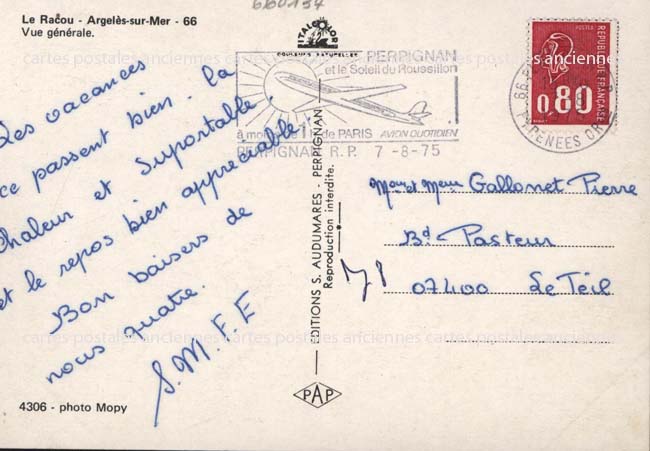 660194
Le Racou - Argelès-sur-Mer - 66
Vue générale.
ITALCOLOR
COULEURS NATURELLES
Les vacances
ce passent bien. la
chaleur et suportable,
et le repos bien appréciable
Bon baisers de
nous quatre.
S.M.F.E
4306 - photo Mopy
EDITIONS S. AUDUMARES - PERPIGNAN -
Reproduction interdite.
PAP
PERPIGNAN
et le Soleil du Roussillon
à moins de 1 h de PARIS AVION QUOTIDIEN
PERPIGNAN R.P. 7-8-75
REPUBLIQUE FRANÇAISE
0,80
66
PYRENEES OR
Mr et Mme Gallonet Pierre
Bd Pasteur
07400 Le Teil
cartes postales anciennes cartes postales anciennes cartes postales anciennes
cartes postales anciennes cartes postales anciennes cartes postales anciennes